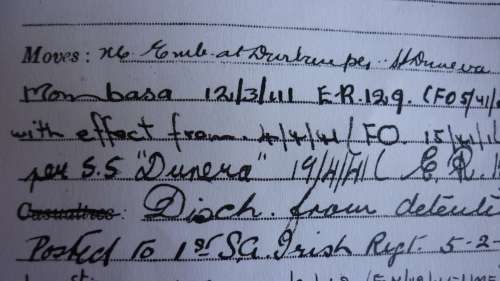 Moves: Emb. at Durban per. Dunera
Mombasa 12/3/41 E.R.129. (FO 5/41/
with effect from 4/4/41 (FO. 15/41/
per S.S "Dunera" 19/4/41 ( E. R.
Casualties: Disch. from detenti
Posted To 1st S.A. Irish Regt. 5-2-